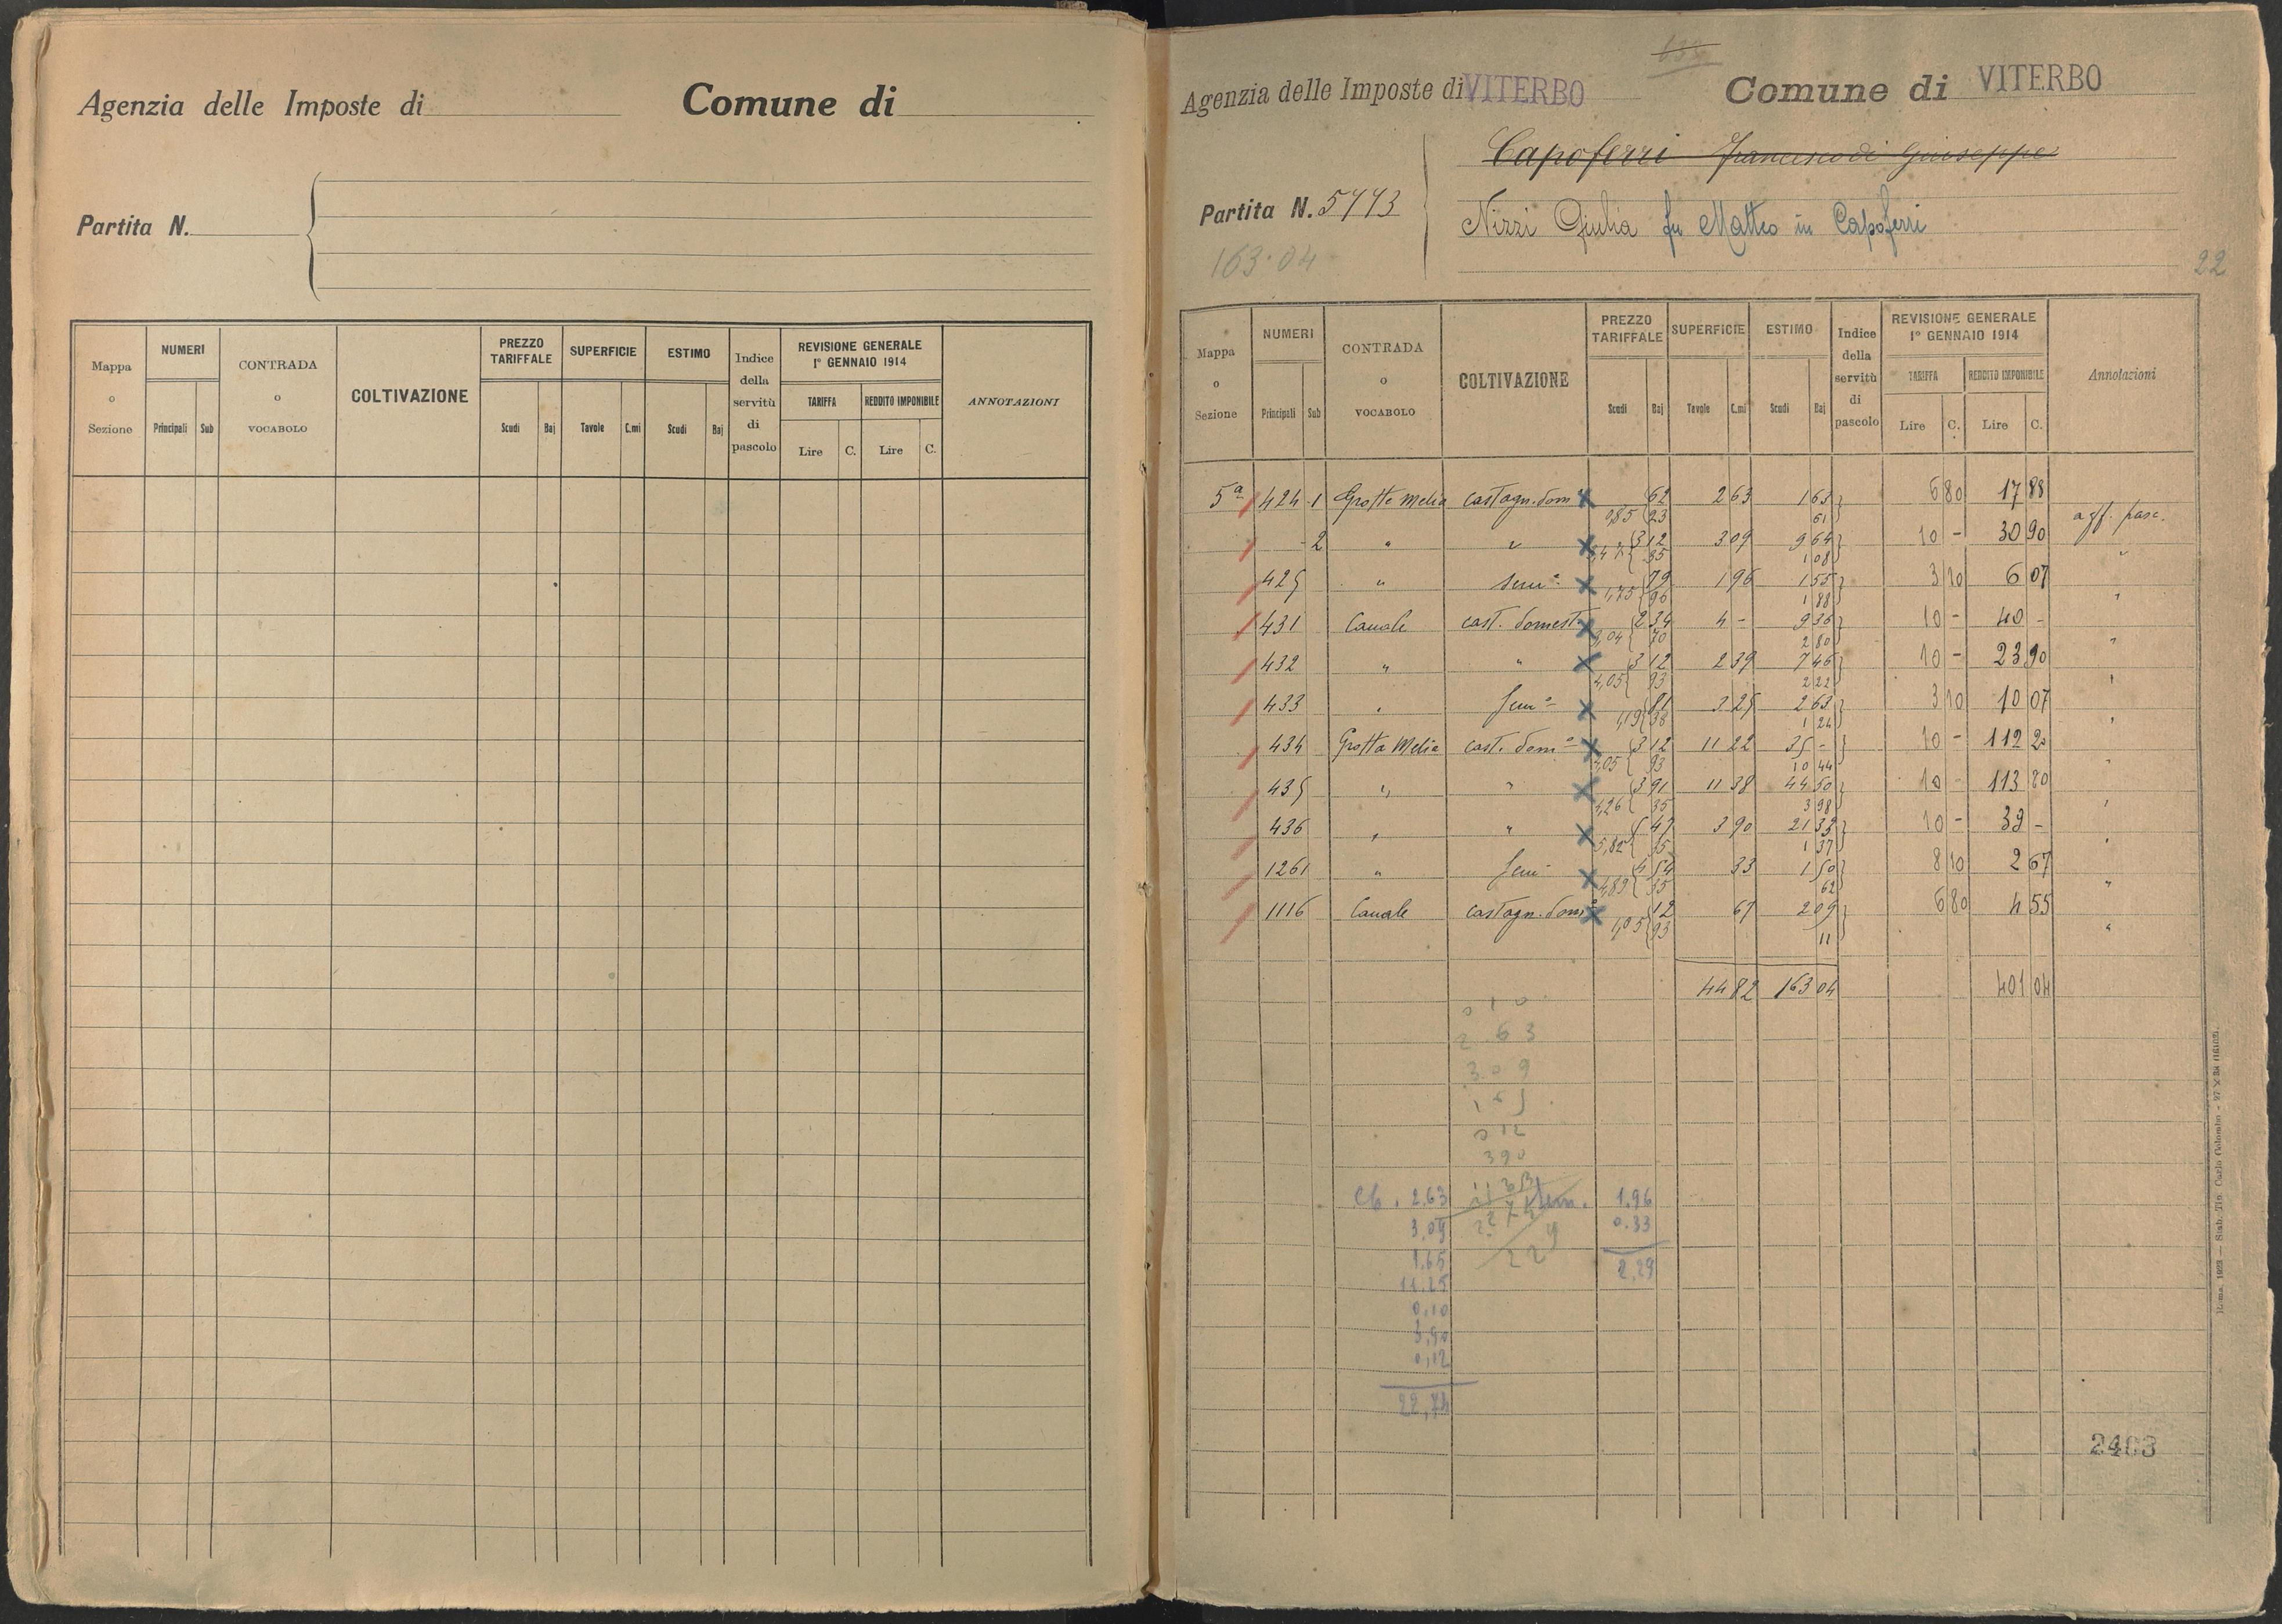 Agenzia delle Imposte di Comune di
Partita N.
Mappa o Sezione NUMERI Principali Sub CONTRADA o VOCABOLO COLTIVAZIONE PREZZO TARIFFALE Scudi Baj SUPERFICIE Tavole C.mi ESTIMO Scudi Baj Indice della servitù di pascolo REVISIONE GENERALE 1° GENNAIO 1914 TARIFFA Lire C. REDDITO IMPONIBILE Lire C. ANNOTAZIONI
Agenzia delle Imposte di VITERBO Comune di VITERBO
Capoferri Francesco di Giuseppe
Partita N. 5773
Nizzi Giulia fu Matteo in Capoferri
163.04
22
Mappa o Sezione NUMERI Principali Sub CONTRADA o VOCABOLO COLTIVAZIONE PREZZO TARIFFALE Scudi Baj SUPERFICIE Tavole C.mi ESTIMO Scudi Baj Indice della servitù di pascolo REVISIONE GENERALE 1° GENNAIO 1914 TARIFFA Lire C. REDDITO IMPONIBILE Lire C. Annotazioni
5ª 424 1 Grotte Melia castagn. dom 62 2 63 1 63 6 80 17 88
985 23 61 aff. pasc.
2 " " 3 12 3 09 9 64 10 - 30 90
35 1 08 "
425 " sem° 79 1 96 1 55 3 10 6 07
1,75 96 1 88 "
431 Canale cast. domest. 2 34 4 - 9 36 10 - 40 -
3,04 70 2 80 "
432 " " 3 12 2 39 7 46 10 - 23 90
4,05 93 2 22 "
433 " Sem° 81 3 25 2 63 3 10 10 07
1,19 38 1 24 "
434 Grotta Melia cast. dom° 3 12 11 22 35 - 10 - 112 20
4,05 93 10 44 "
435 " " 3 91 11 38 44 50 10 - 113 80
4,26 35 3 98 "
436 " " 5 47 3 90 21 33 10 - 39 -
5,82 35 1 37 "
1261 " Sem 4 54 33 1 50 8 10 2 67
4,89 35 62 "
1116 Canale castagn. dom° 12 67 2 09 6 80 4 55
93 11 "
44 82 163 04 401 04
2 63
3 09
0 12
3 90
2,63 Sem. 1.96
3,09 0.33
1.65 22 2,29
11.25
0,10
3,90
0,12
22,74
2403
Roma, 1923 — Stab. Tip. Carlo Colombo